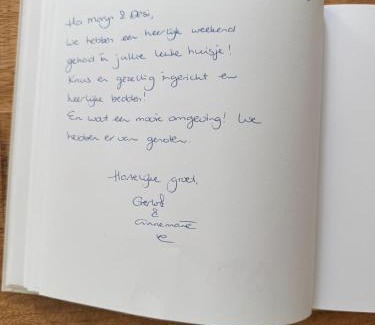 Ha Marijn & Desi,
We hebben een heerlijk weekend
gehad in jullie leuke huisje!
Knus en gezellig ingericht en
heerlijke bedden!
En wat een mooie omgeving! We
hebben er van genoten.
Hartelijke groet,
Gerlof
&
Annemarie